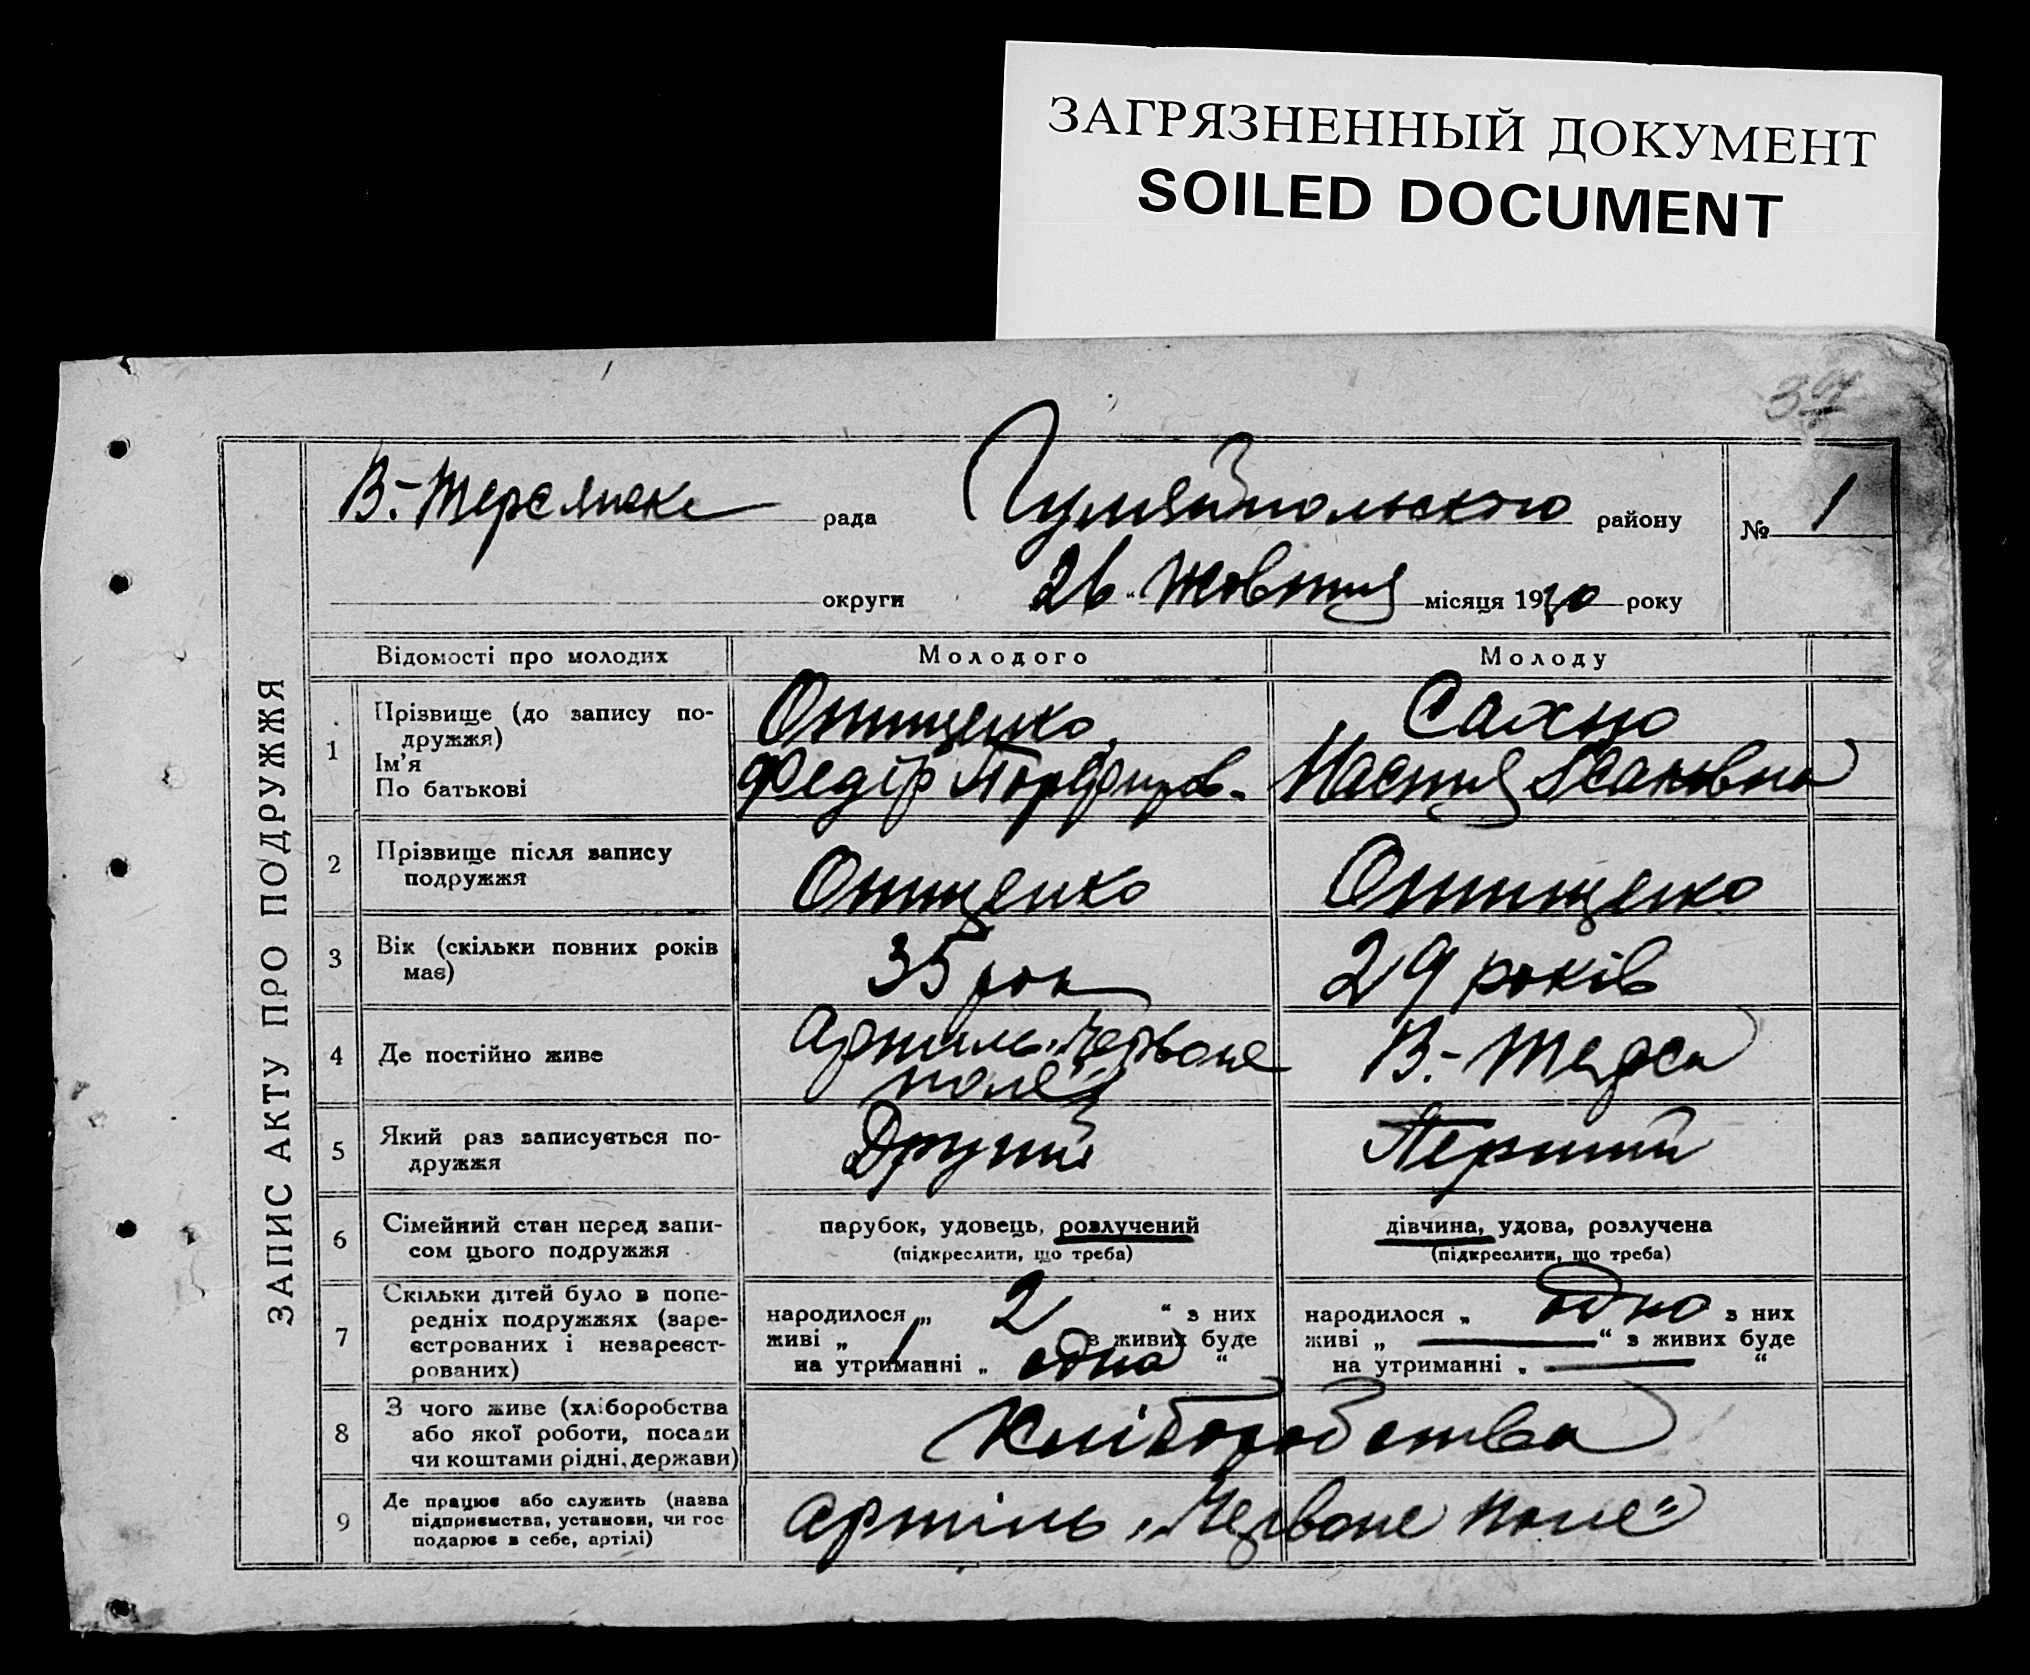 ЗАГРЯЗНЕННЫЙ ДОКУМЕНТ
SOILED DOCUMENT
ЗАПИС АКТУ ПРО ПОДРУЖЖЯ
В.-Терсянске рада Гуляйпольского району № 1
округи 26 " Жовтня місяця 1930 року
Відомості про молодих Молодого Молоду
1 Прізвище (до запису по-
дружжя) Онищенко Сахно
Ім'я
По батькові Федір Порфиров. Настя Ісаковна
2 Прізвище після запису
подружжя Онищенко Онищенко
3 Вік (скільки повних років
має) 35 рок 29 років
4 Де постійно живе артиль „Червоне
поле" В.-Терса
5 Який раз записується по-
дружжя Другий Перший
6 Сімейний стан перед запи- парубок, удовець, розлучений дівчина, удова, розлучена
сом цього подружжя (підкреслити, що треба) (підкреслити, що треба)
7 Скільки дітей було в попе-
редніх подружжях (заре- народилося „ 2 " з них народилося „ одно з них
єстрованих і незареєст- живі „ 1 з живих буде живі „ — " з живих буде
рованих) на утриманні „ одна " на утриманні „ — "
8 З чого живе (хліборобства
або якої роботи, посади Хліборобства
чи коштами рідні, держави)
9 Де працює або служить (назва
підприємства, установи, чи гос- артіль „Червоне поле"
подарює в себе, артілі)